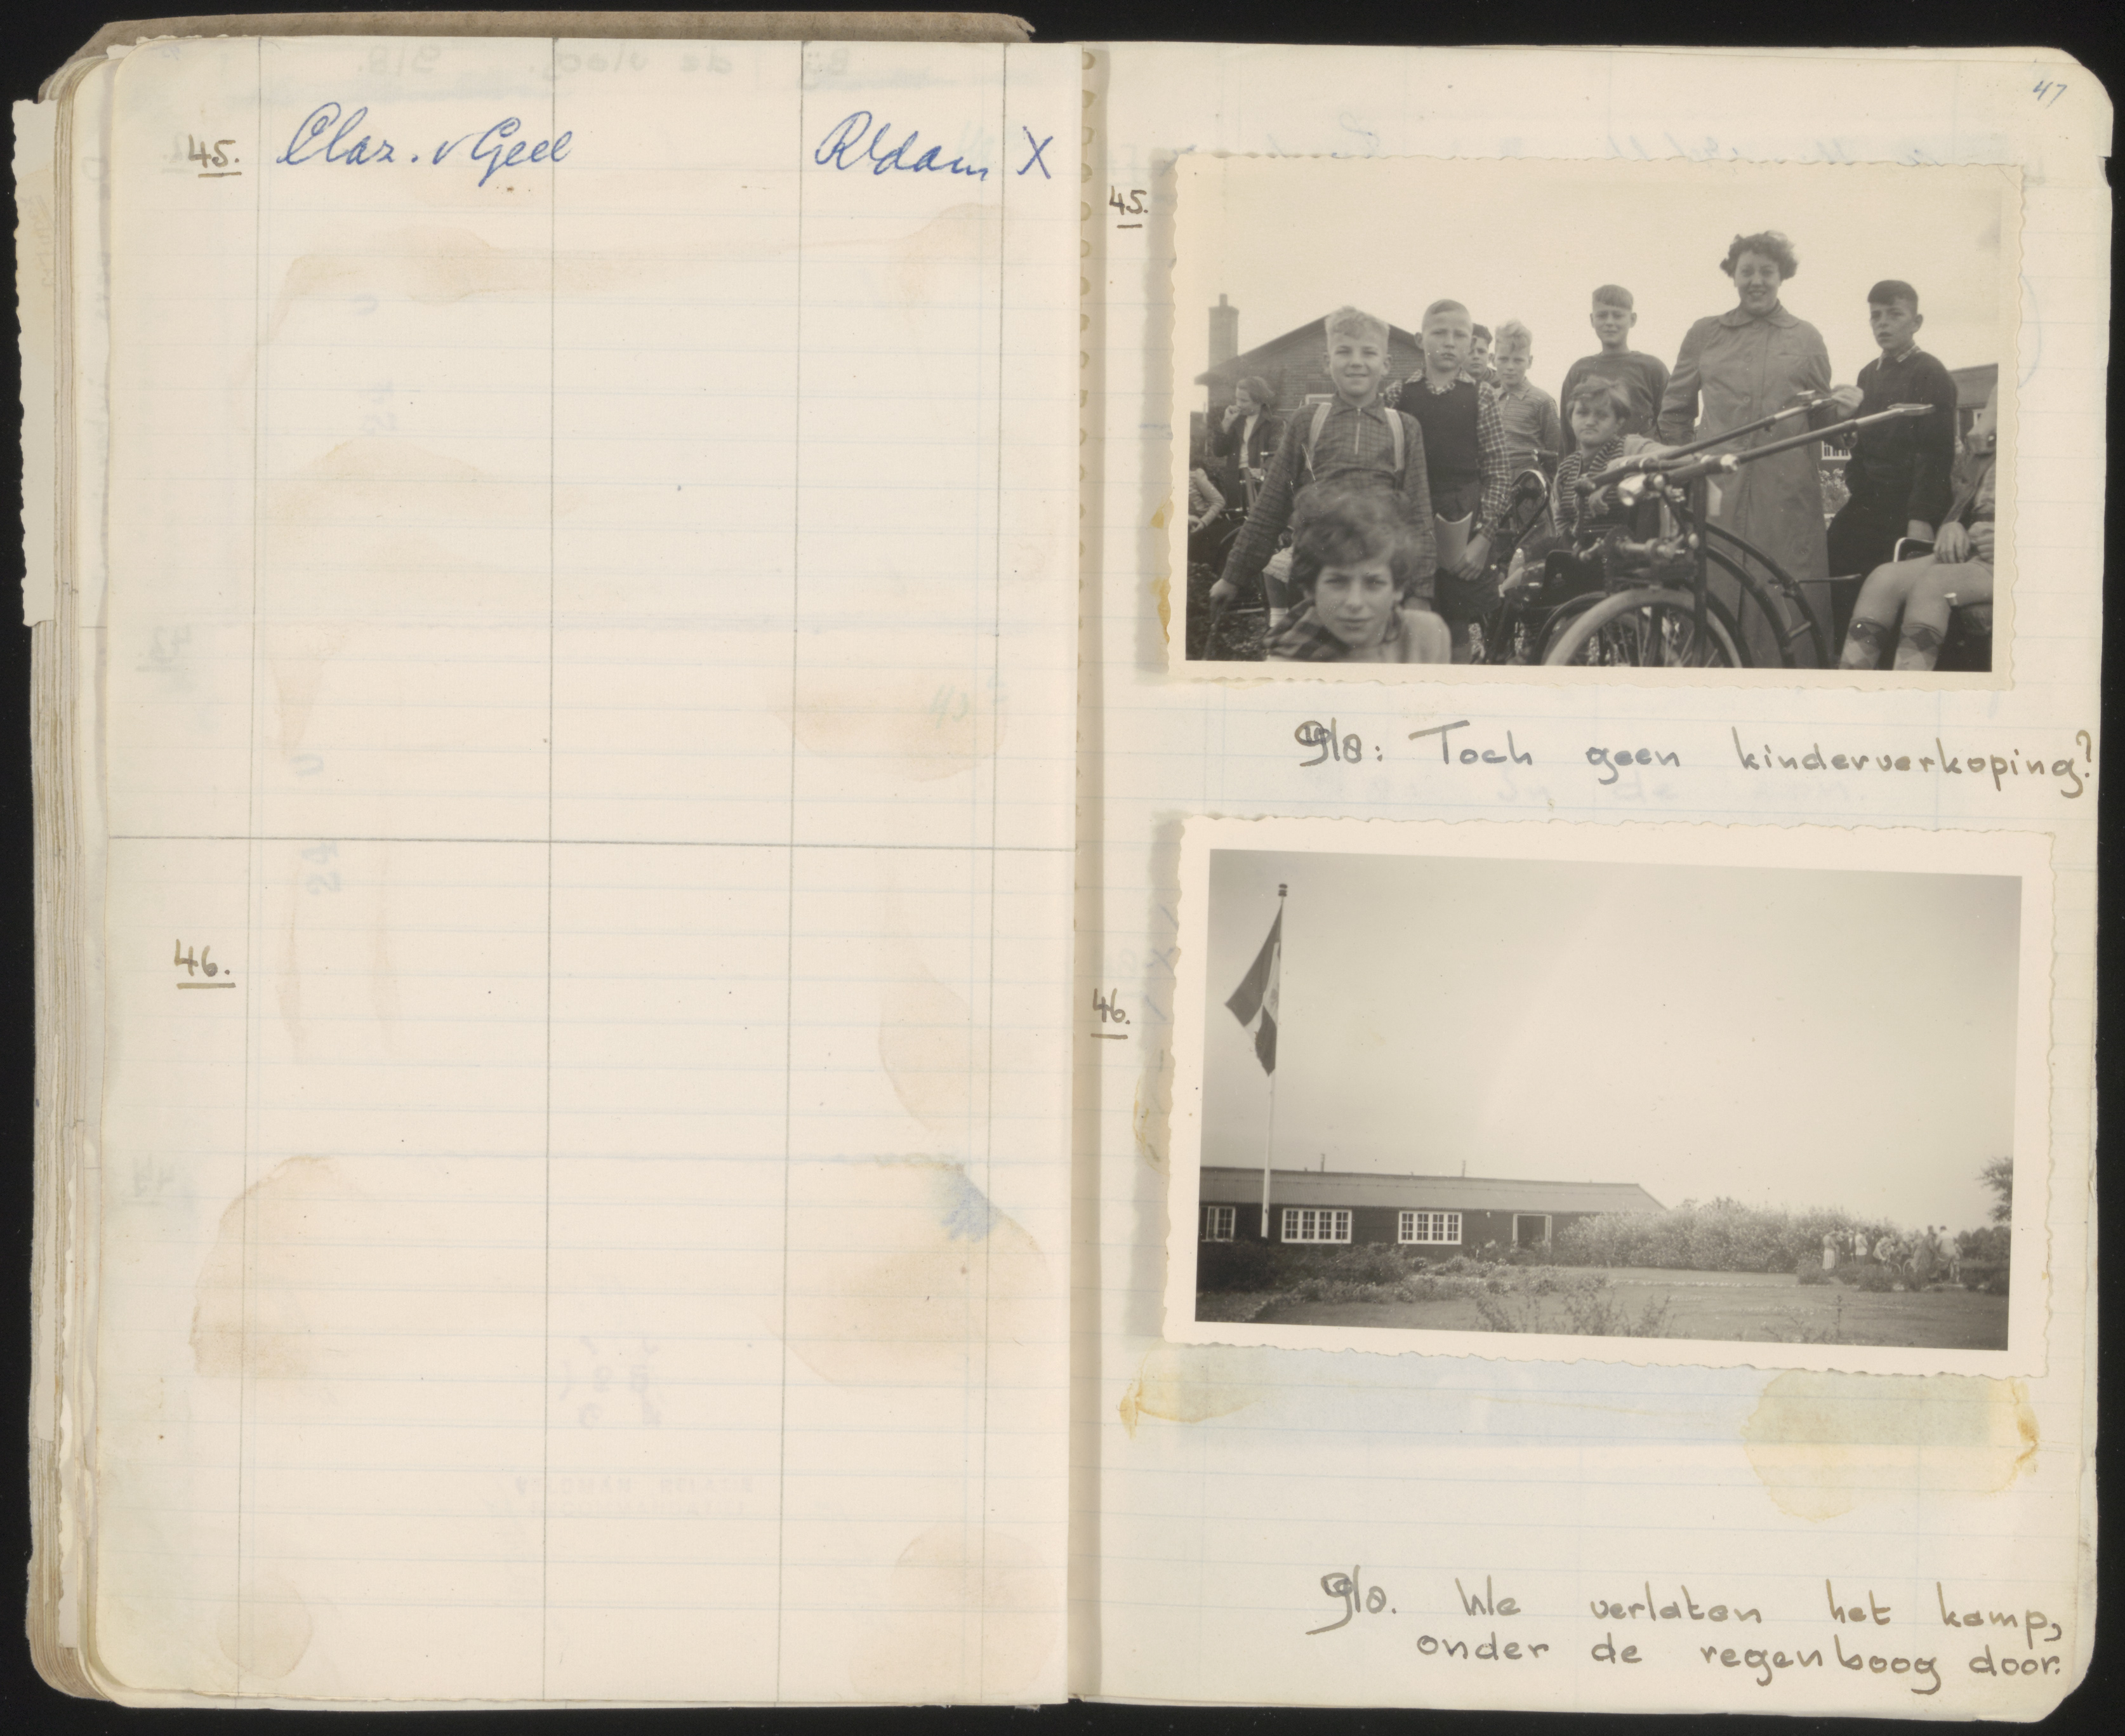 45. Claz. v Geel R'dam X
46.
47
45.
9/8: Toch geen kinderverkoping?
46.
9/8. We verlaten het kamp,
onder de regenboog door.